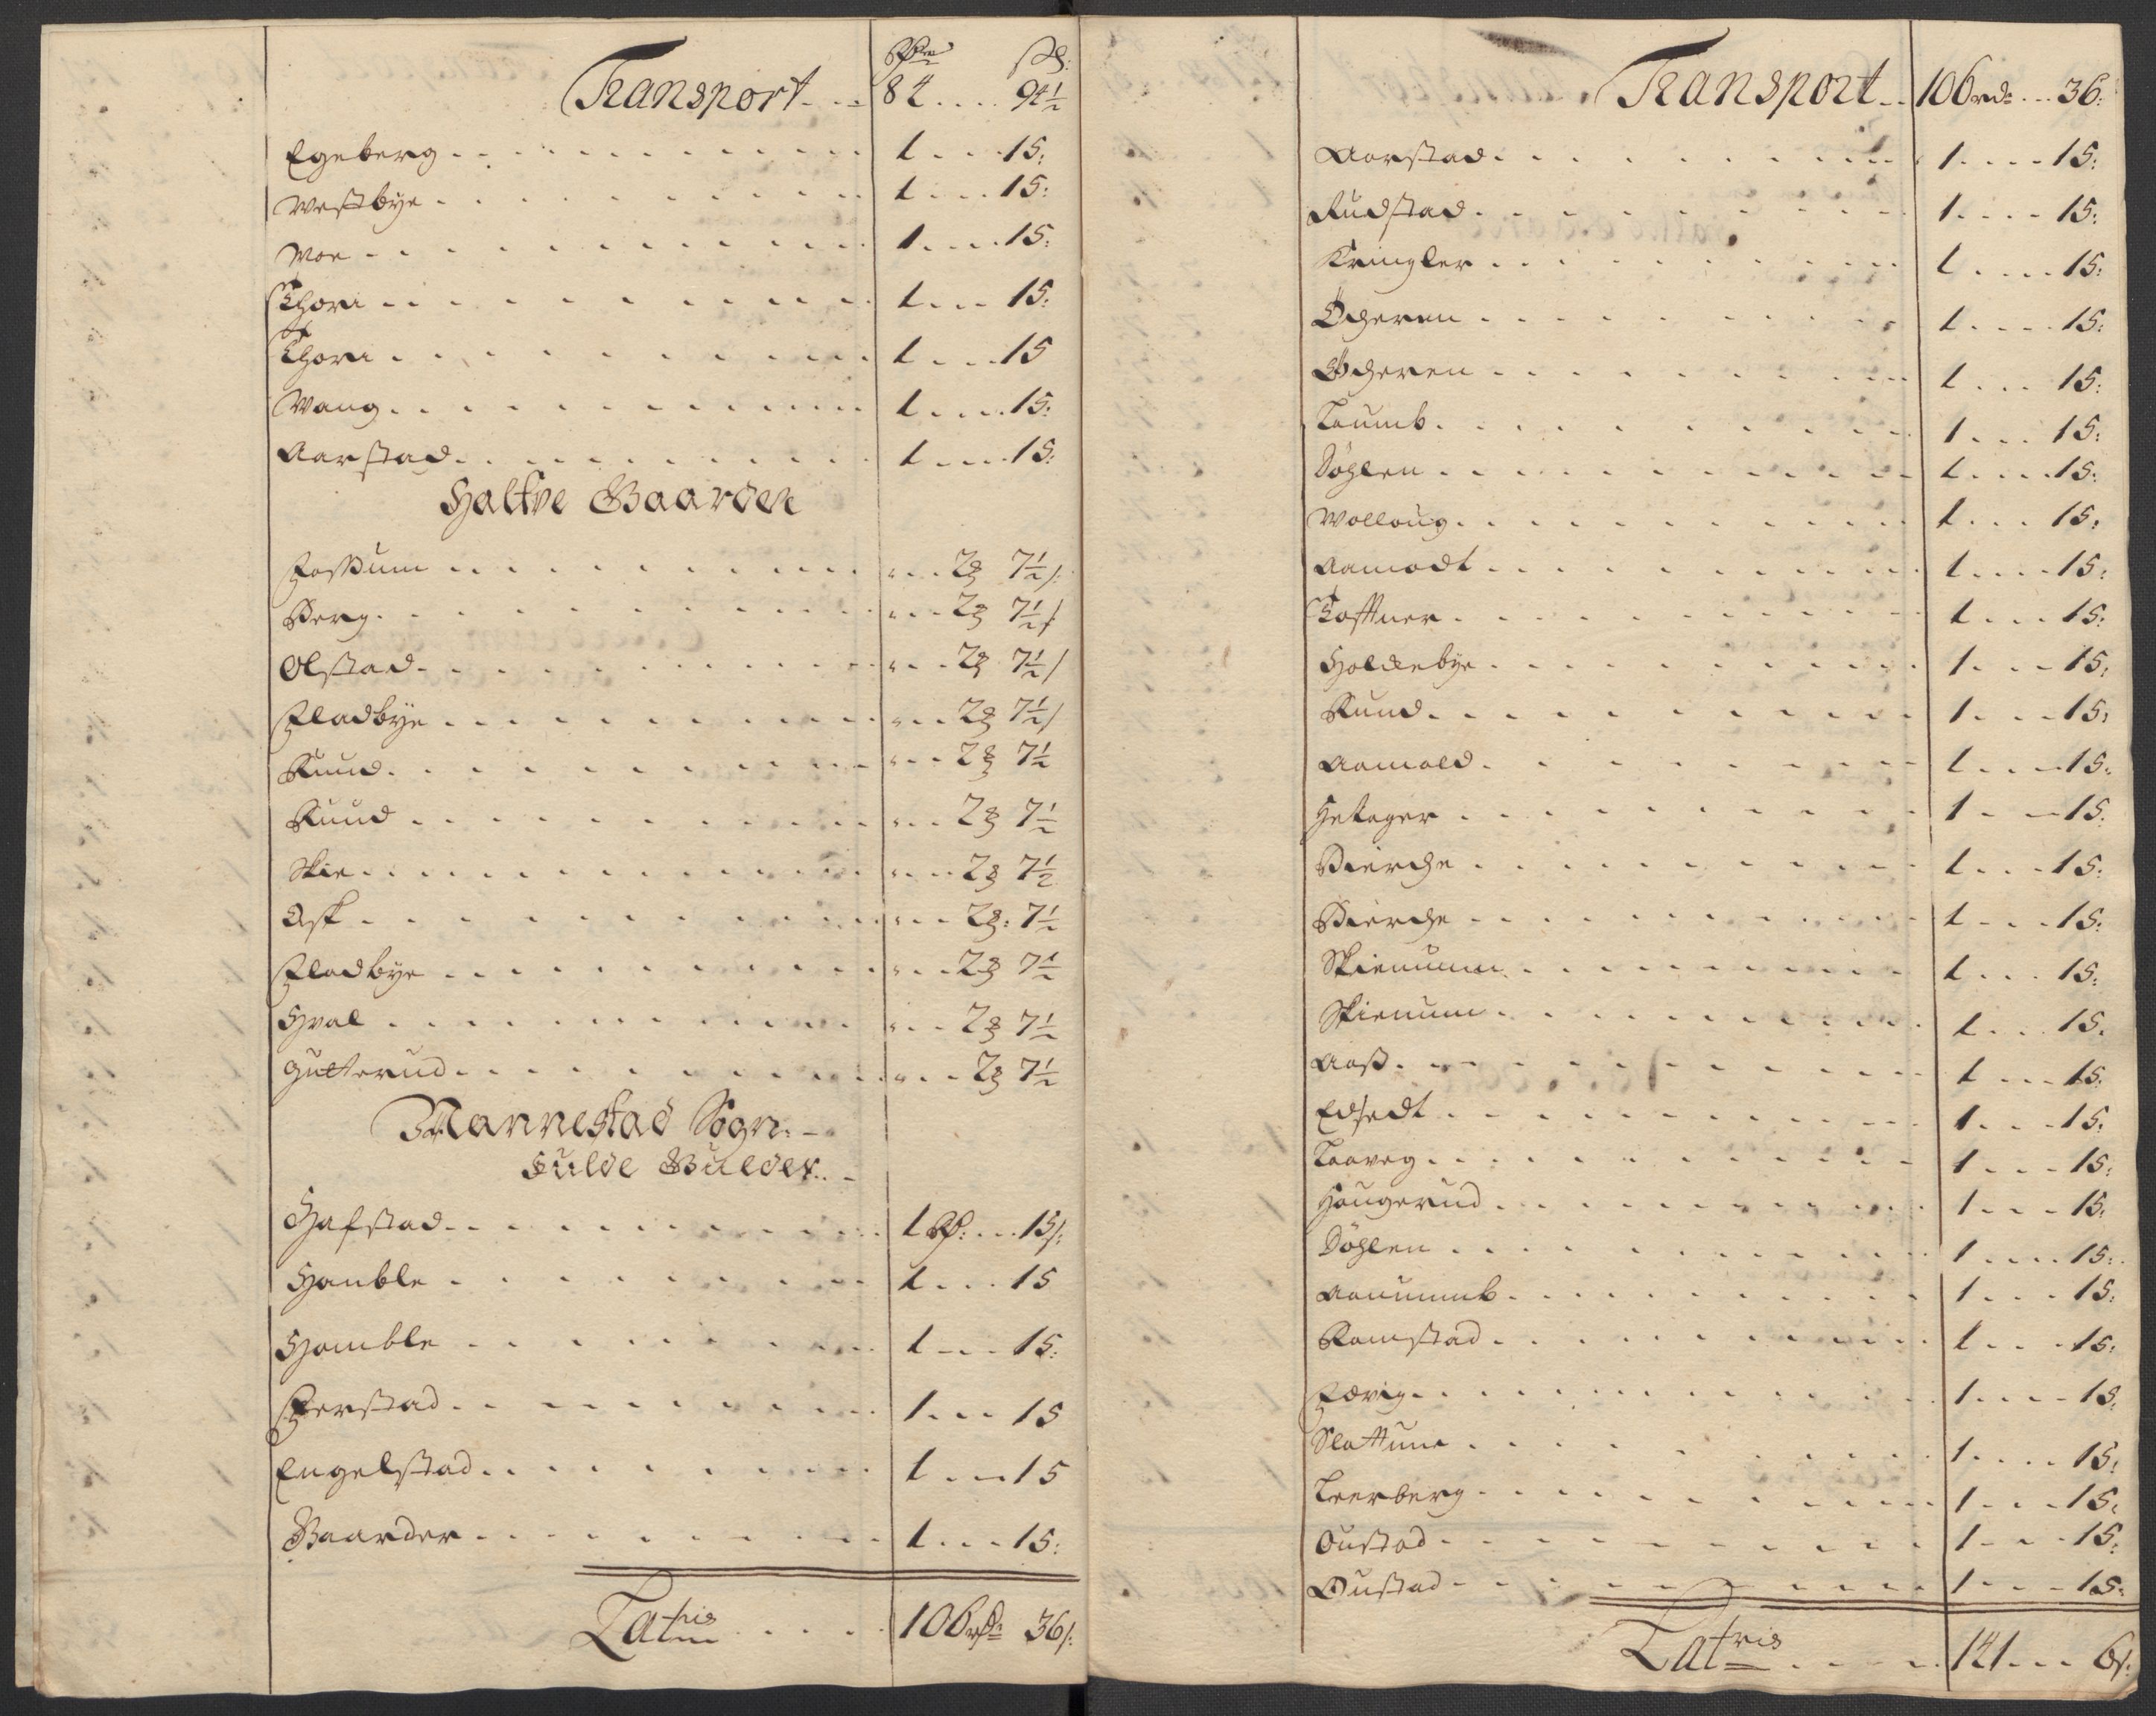 Rdr ß:
Transport 84 94½
Egeberg 1 15:
Westbye 1 15:
Moe 1 15:
Thori 1 15:
Thori 1 15
Wang 1 15:
Aarstad 1 15:
Halfve Gaarder
Fossum 2 7½
Berg 2 7½
Olstad 2 7½
Fladbye 2 7½
Ruud 2 7½
Ruud 2 7½
Skie 2 7½
Ask 2 7½
Fladbye 2 7½
Hval 2 7½
Gutterud 2 7½
Mannestad Sogn
Fulde Gulder
Hafstad 1 15
Hauble 1 15
Homble 1 15:
Ferstad 1 15
Engelstad 1 15
Gaarder 1 15:
Latris 106 36
Transport 106 rd: 36:
Aarstad 1 15:
Rudstad 1 15:
Kringler 1 15:
Ögeren 1 15:
Ögeren 1 15:
Laumb 1 15:
Döhlen 1 15:
Wolloug 1 15:
Aamodt 1 15:
Toftner 1 15:
Holdebye 1 15:
Ruud 1 15:
Aamold 1 15:
Heksger 1 15:
Bierche 1 15:
Bierche 1 15:
Skienumm 1 15:
Skienum 1 15:
Aaß 1 15:
Edsedt 1 15:
Laaveg 1 15:
Haugerud 1 15:
Döhlen 1 15:
Aaummb 1 15:
Ramstad 1 15:
Færig 1 15:
Slattum 1 15:
Leerberg 1 15:
Oustad 1 15:
Oustad 1 15:
Latris 141 6